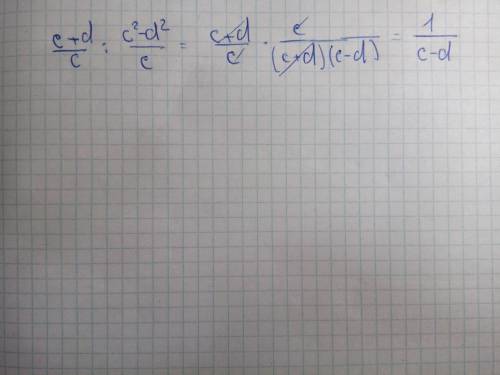 (c+d)/c : (c²-d²)/c = (c+d)/c · c/((c+d)(c-d)) = 1/(c-d)